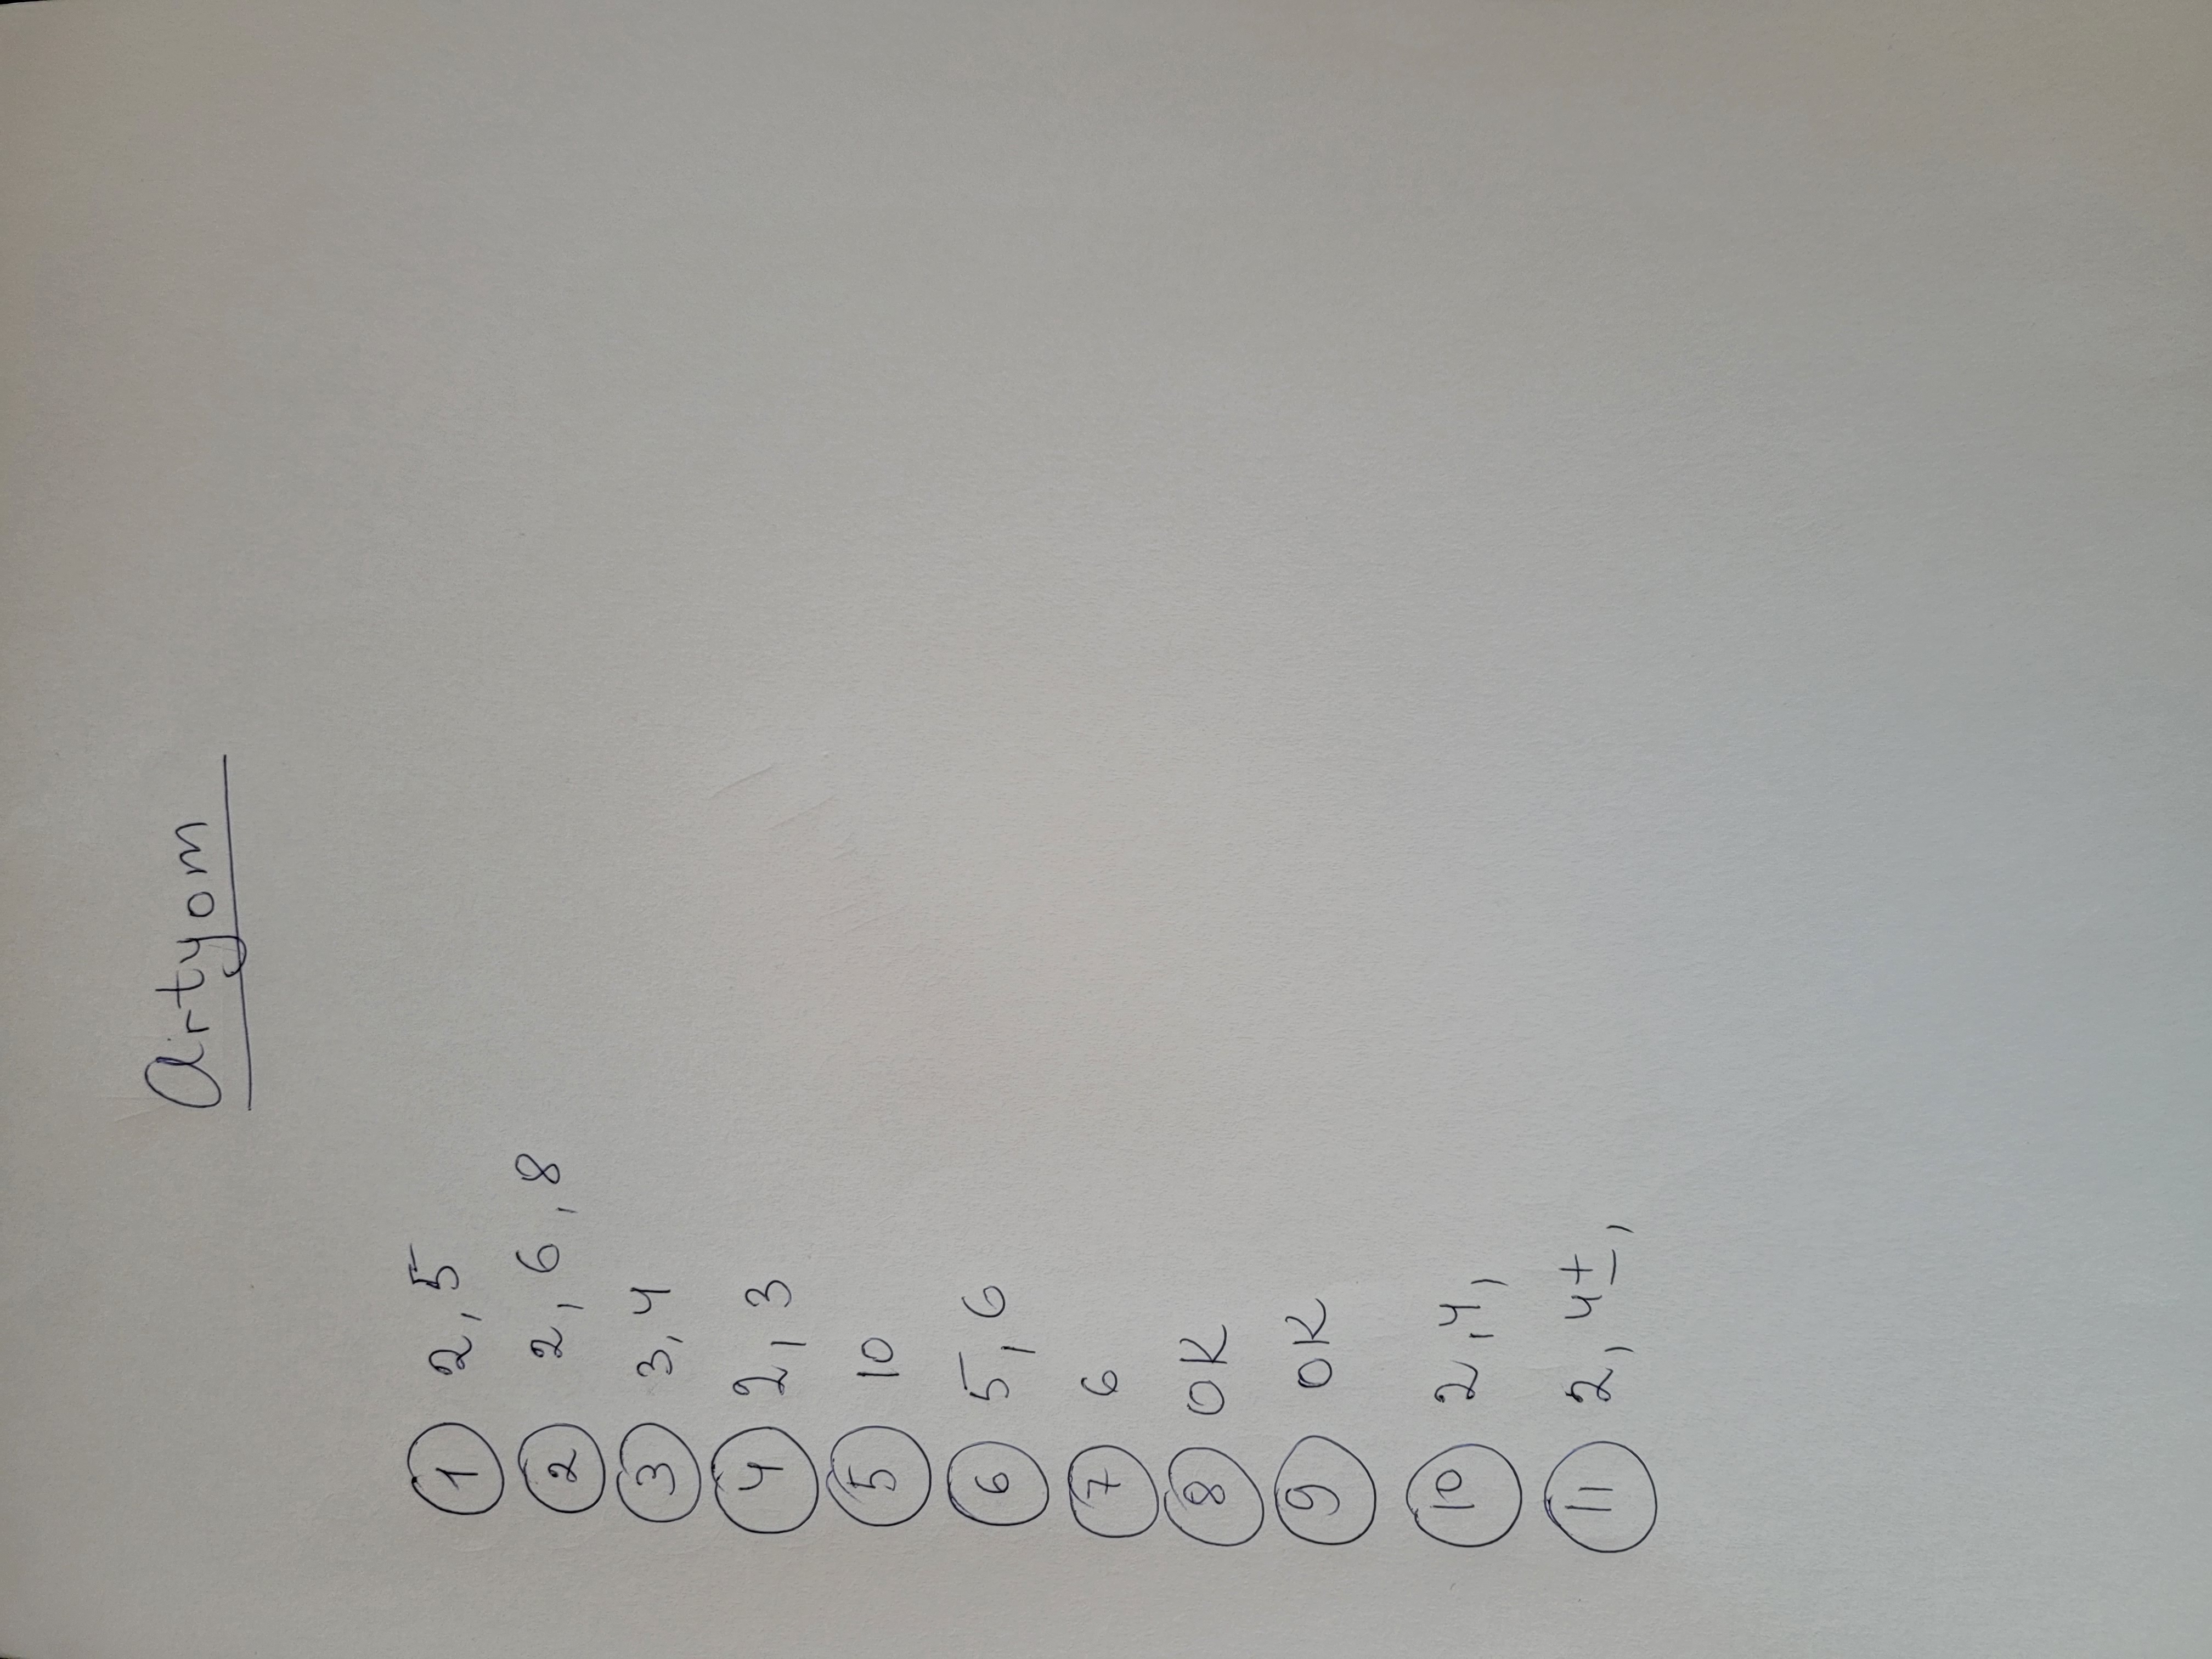 Artyom
1 2, 5
2 2, 6, 8
3 3, 4
4 2, 3
5 10
6 5, 6
7 6
8 OK
9 OK
10 2, 4,
11 2, 4±,